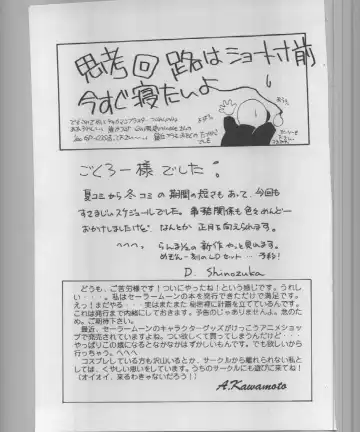 思考回路はショート寸前
今すぐ寝たいよ
ごくろー様でした。
夏コミから冬コミの期間の短さもあって、今回も
すさまじいスケジュールでした。事務関係も色々めんどー
おかけしましたけど なんとか正月を迎えられます。
へへへ。 らんま½の新作やっと見れます。
めぞん一刻のLDセット…
D. Shinozuka
どうも、ご苦労様です!ついにやったね!という感じです。うれし
い・・・。私はセーラームーンの本を発行できただけで満足です。
えっ!まだやる・・・実はまたまた秘密裡に計画を立てているんです。
これは発行まで内緒にしておきます。予告のじゃありませんよ。念のた
め。ご期待下さい。
最近、セーラームーンのキャラクターグッズがけっこうアニメショッ
プで発売されていますよね。つい欲しくて買ってしまうんだけど・・・
やっぱりこの歳になるとなかなかはずかしいもんです。でも欲しいから
行っちゃう。へへへ
コスプレしている方も沢山いるとか、サークルから離れられない私と
しては、くやしい思いをしています。うちのサークルにも遊びに来てね!
(オイオイ、来るわきゃないだろう!)
A.Kawamoto